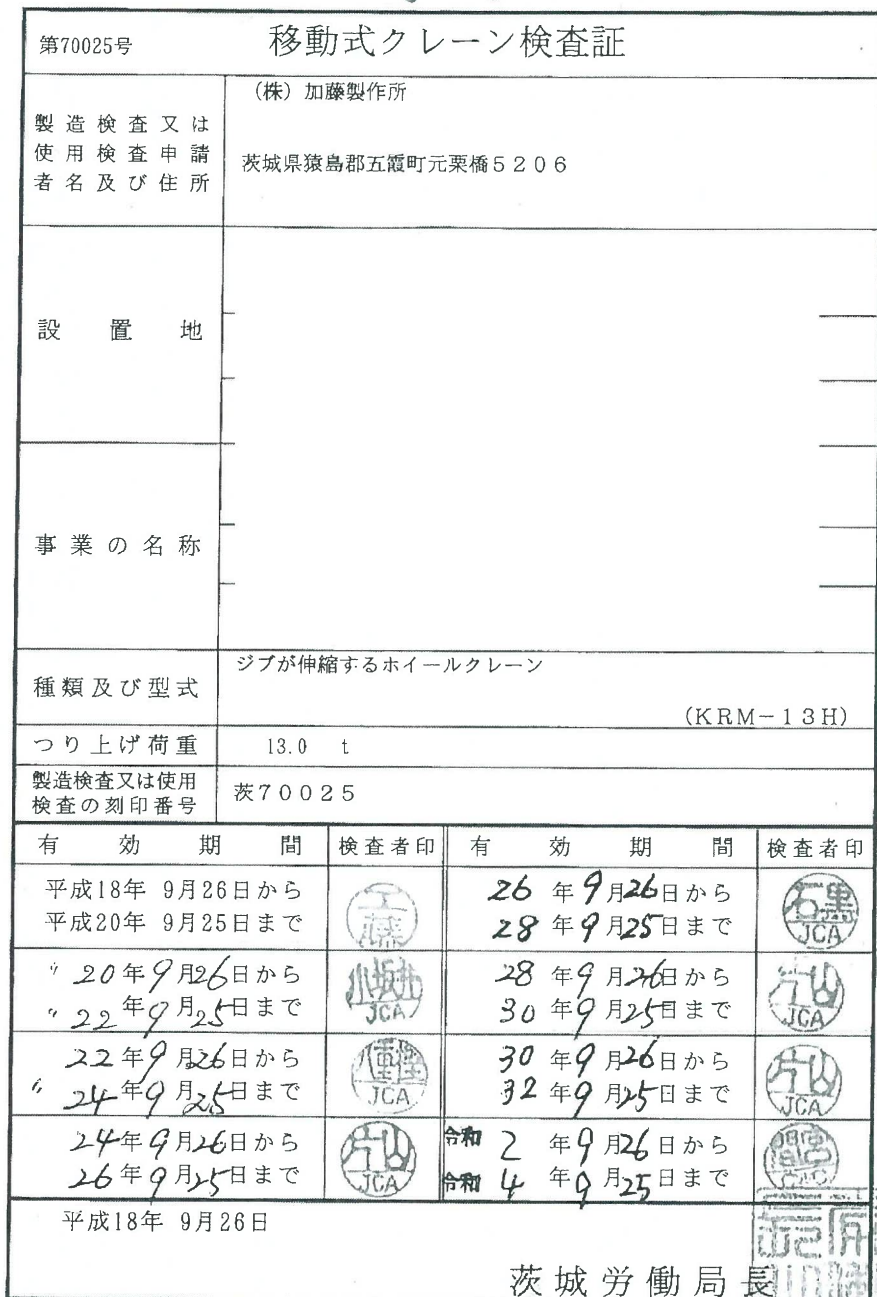 第70025号
移動式クレーン検査証
製造検査又は
使用検査申請
者名及び住所
(株) 加藤製作所
茨城県猿島郡五霞町元栗橋5206
設置地
事業の名称
種類及び型式
ジブが伸縮するホイールクレーン
(KRM-13H)
つり上げ荷重
13.0 t
製造検査又は使用
検査の刻印番号
茨70025
有効期間 検査者印 有効期間 検査者印
平成18年 9月26日から
平成20年 9月25日まで
工藤
〃 20年9月26日から
〃 22年9月25日まで
小坂井
JCA
22年9月26日から
〃 24年9月25日まで
JCA
24年9月26日から
26年9月25日まで
片山
JCA
26年9月26日から
28年9月25日まで
石黒
JCA
28年9月26日から
30年9月25日まで
片山
JCA
30年9月26日から
32年9月25日まで
片山
JCA
令和 2年9月26日から
令和 4年9月25日まで
間宮
平成18年 9月26日
茨城労働局長